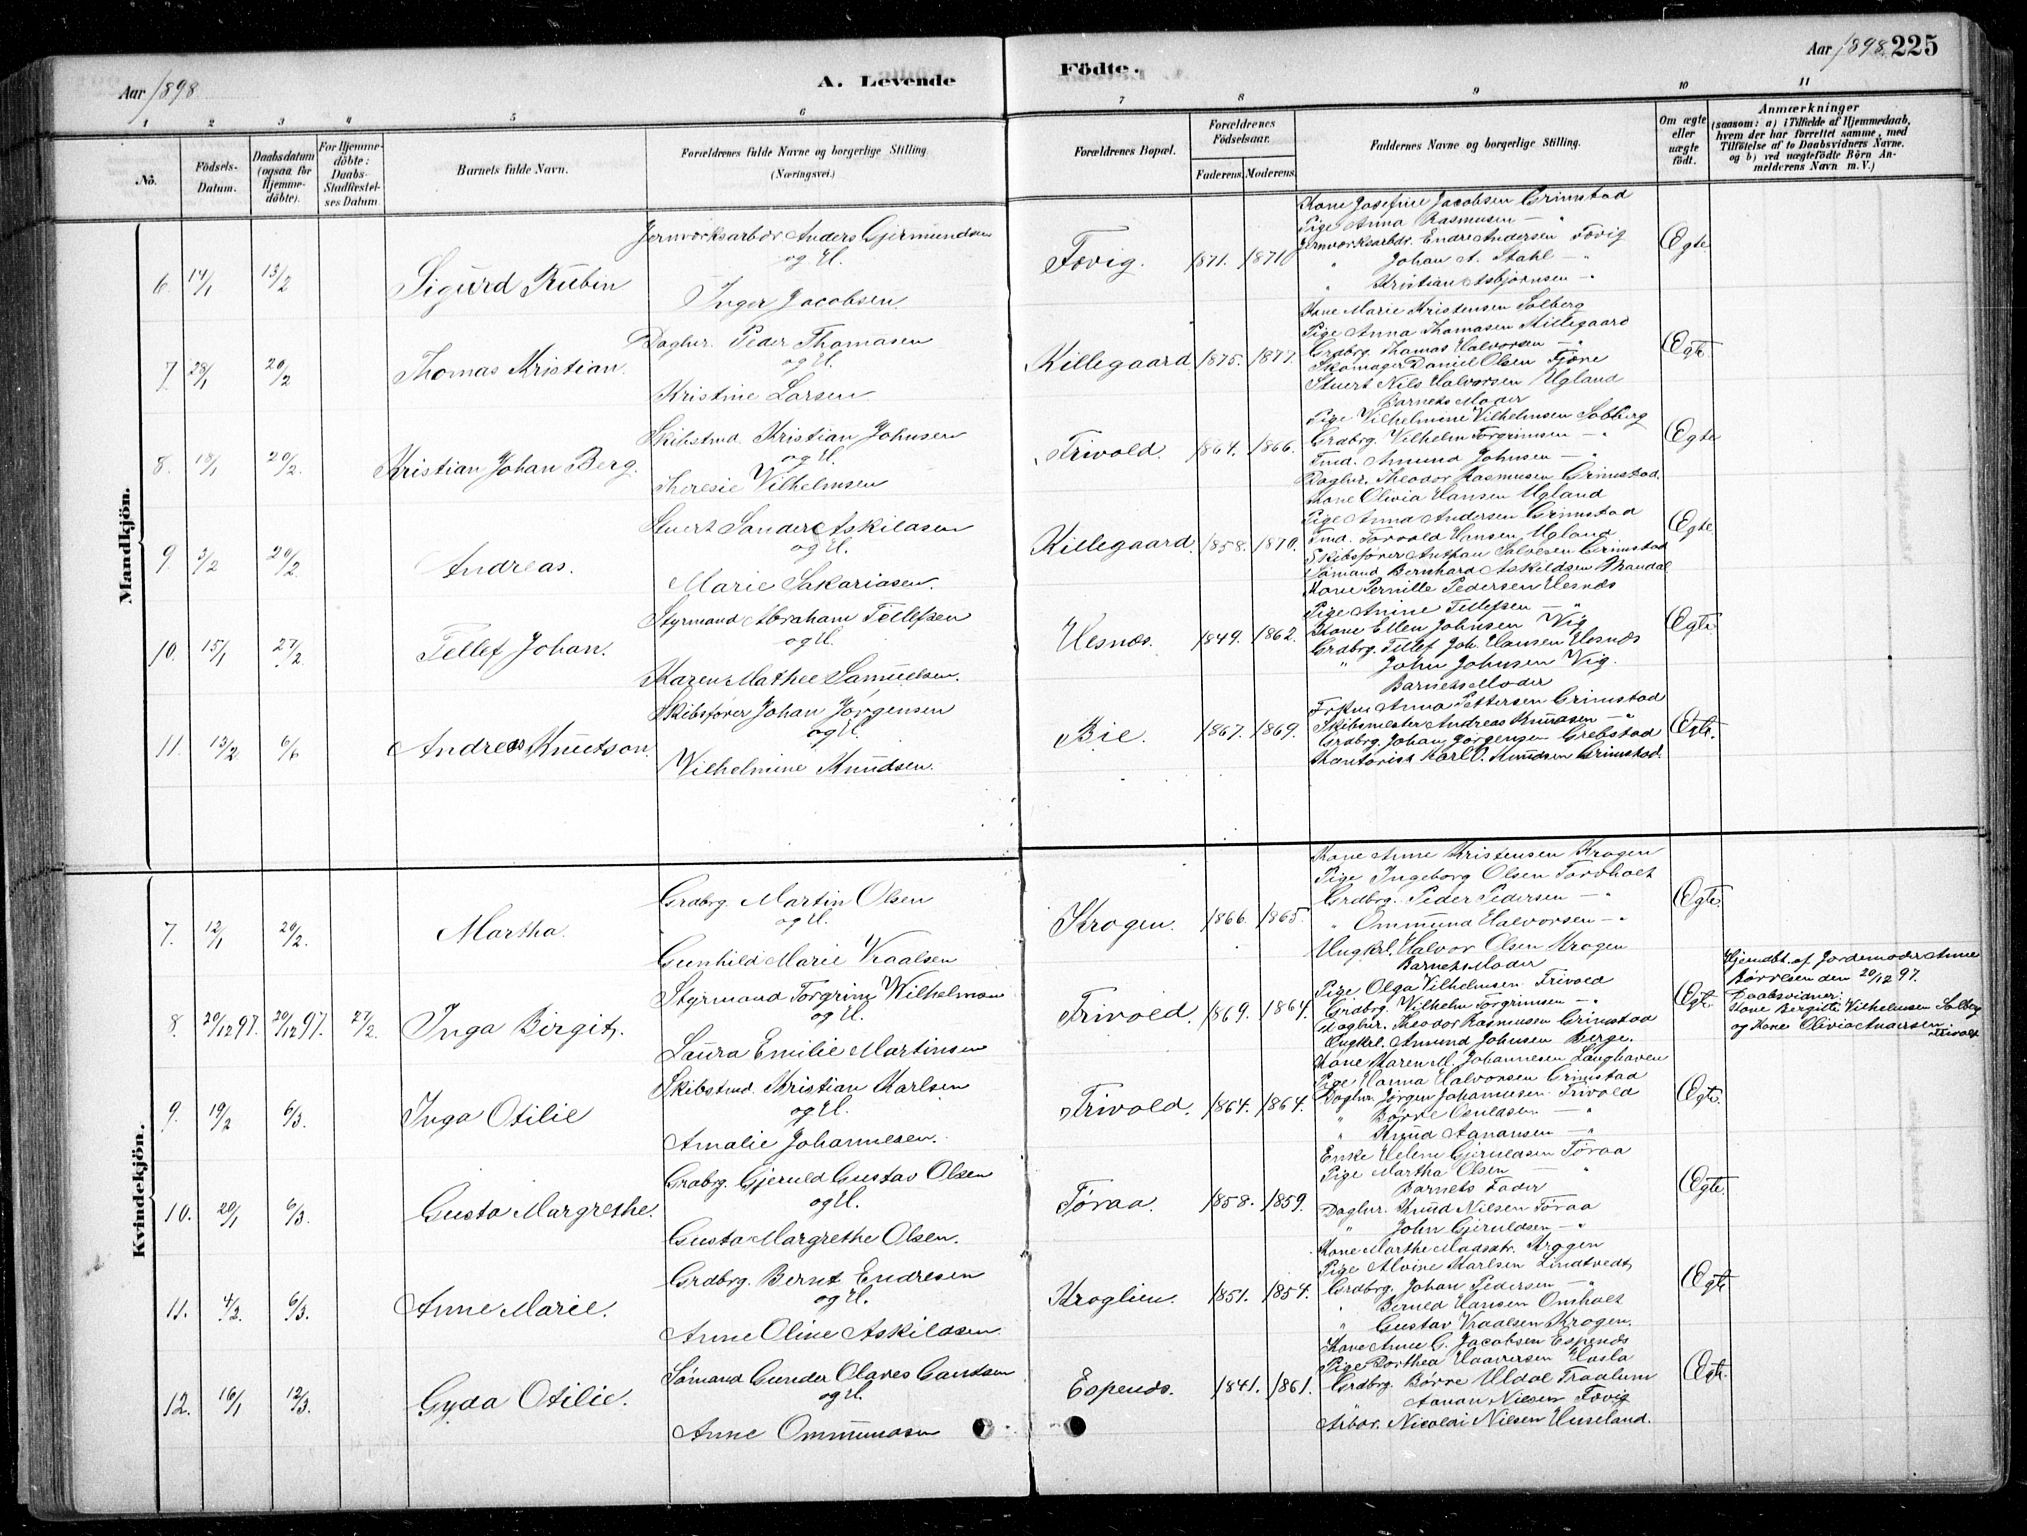 Aar 1898
A. Levende
Födte.
Aar 1898. 225
1 2 3 4 5 6 7 8 9 10 11
No.
Födsels-Datum.
Daabsdatum (ogsaa for Hjemmedöbte).
For Hjemmedöbte: Daabs-Stadfæstelses Datum.
Barnets fulde Navn.
Forældrenes fulde Navne og borgerlige Stilling (Næringsvei.)
Forældrenes Bopæl.
Forældrenes Födselsaar.
Faderens. Moderens.
Faddernes Navne og borgerlige Stilling.
Om ægte eller uægte födt.
Anmærkninger
(saasom: a) i Tilfælde af Hjemmedaab, hvem der har forrettet samme, med Tilföielse af to Daabsvidners Navne. og b) ved uægtefödte Börn Anmelderens Navn m. V.)
Mandkjön.
6. 14/1 13/2 Sigurd Rubin
Jernverksarbdr. Anders Gjermundsen
og H.
Inger Jacobsen.
Fevig. 1871. 1871
Kone Josefine Jacobsen Grimstad
Pige Anna Rasmusen — "
Jernverksarbdr. Endre Andersen Fevig
" Johan A. Stahl — "
" Kristian Asbjørnsen — "
Ægte
7. 28/1 20/2 Thomas Kristian.
Daglur. Peder Thomasen
og H.
Kristine Larsen
Killegaard 1875. 1877.
Kone Marie Kristensen Solberg
Pige Anna Thomasen Killegaard
Grdbrg. Thomas Halvorsen — "
Skomager Daniel Olsen Fjære
Stuert Nils Halvorsen Ugland
Ægte.
8. 18/1 20/2. Kristian Johan Berg.
Skibstmd. Kristian Johnsen
og H.
Theresie Vilhelmsen
Frivold. 1864. 1866.
Barnets Moder
Pige Vilhelmine Vilhelmsen Solberg
Grdbrg. Vilhelm Torgrimsen — "
Tmd. Amund Johnsen — "
Daglur. Theodor Rasmusen Grimstad.
Ægte
9 3/2 20/2. Andreas.
Stuert Sander Askildsen
og H.
Marie Sakariasen.
Killegaard. 1858. 1870.
Kone Olivia Hansen Ugland
Pige Anna Andersen Grimstad
Tmd. Torvald Hansen Ugland
Skibsfører Anthan Salvesen Grimstad
Sømand Bernhard Askildsen Mandal
Ægte
10. 15/1 27/2. Tellef Johan.
Styrmand Abraham Tellefsen
og H.
Karen Mathee Samuelsen.
Hesnæs. 1849. 1862.
Kone Pernille Pedersen Hesnæs
Pige Anine Tellefsen — "
Kone Ellen Johnsen Vig
Grdbrg. Tellef Joh. Hansen Hesnæs
" John Johnsen Vig.
Ægte
11. 13/2 6/6 Andreas Knutson.
Skibsfører Johan Jørgensen
og H.
Wilhelmine Knudsen.
Bie. 1867. 1869.
Barnets Moder
Frkn Anna Pettersen Grimstad
Skibsmester Andreas Knudsen — "
Grdbrg. Johan Jørgensen Grebstad
Kontorist Karl O. Knudsen Grimstad.
Ægte.
Kvindekjön.
7. 12/1 20/2. Martha.
Grdbrg. Martin Olsen
og H.
Gunhild Marie Kvalsen
Krogen. 1866. 1865.
Kone Anne Kristensen Krogen
Pige Ingeborg Olsen Tordholt
Grdbrg. Peder Pedersen — "
" Ommund Halvorsen — "
Ungkrl. Halvor Olsen Krogen
Ægte.
8. 20/12 97. 20/12 97. 27/2 Inga Birgit.
Styrmand Torgrim Wilhelmsen
og H.
Laura Emilie Martinsen
Frivold. 1869. 1864.
Barnets Moder
Pige Olga Vilhelmsen Frivold
Grdbrg. Wilhelm Torgrimsen — "
Daglur. Theodor Rasmusen Grimstad
Ungkrl. Amund Johnsen Berge.
Ægte.
Hjemdbt. af Jordemoder Anne
Børresen den 20/12 97.
Daabsvidner:
Kone Bergitte Vilhelmsen Solberg
og Kone Olivia Andersen
Frivold
9. 19/2 6/3. Inga Otilie
Skibstmd. Kristian Karlsen
og H.
Amalie Johannesen.
Frivold. 1864. 1864.
Kone Karen M. Johannesen Langhaven
Pige Hanna Halvorsen Grimstad
Daglur. Jørgen Johannesen Frivold
" Børre Osuldsen — "
" Knud Aanansen — "
Ægte.
10. 20/1 6/3. Gusta Margrethe.
Grdbrg. Gjeruld Gustav Olsen
og H.
Gusta Margrethe Olsen.
Tøraa. 1858. 1859.
Enke Helene Gjeruldsen Tøraa
Pige Martha Olsen — "
Barnets Fader
Daglur. Knud Nilsen Tøraa
" John Gjeruldsen — "
Ægte.
11. 4/2. 6/3. Anne Marie.
Grdbrg. Bernt Endresen
og H.
Anne Oline Askildsen
Kroglien. 1851. 1854.
Kone Marthe Madsdtr. Krogen
Pige Alvine Karlsen Lindtvedt
Grdbrg. Johan Pedersen — "
" Berned Hansen Omholt
" Gustav Kvalsen Krogen.
Ægte
12. 16/1 12/3. Gyda Otilie.
Sømand Gunder Olaves Gautsen
og H.
Anne Ommundsen
Espenæs. 1841. 1861.
Kone Anne G. Jacobsen Espenæs
Pige Dorthea Haaversen Hasla
Grdbrg. Børre Uldal Fradlum
" Aanon Nilsen Fevig
Arbdr. Nicolai Nilsen Huseland.
Ægte.